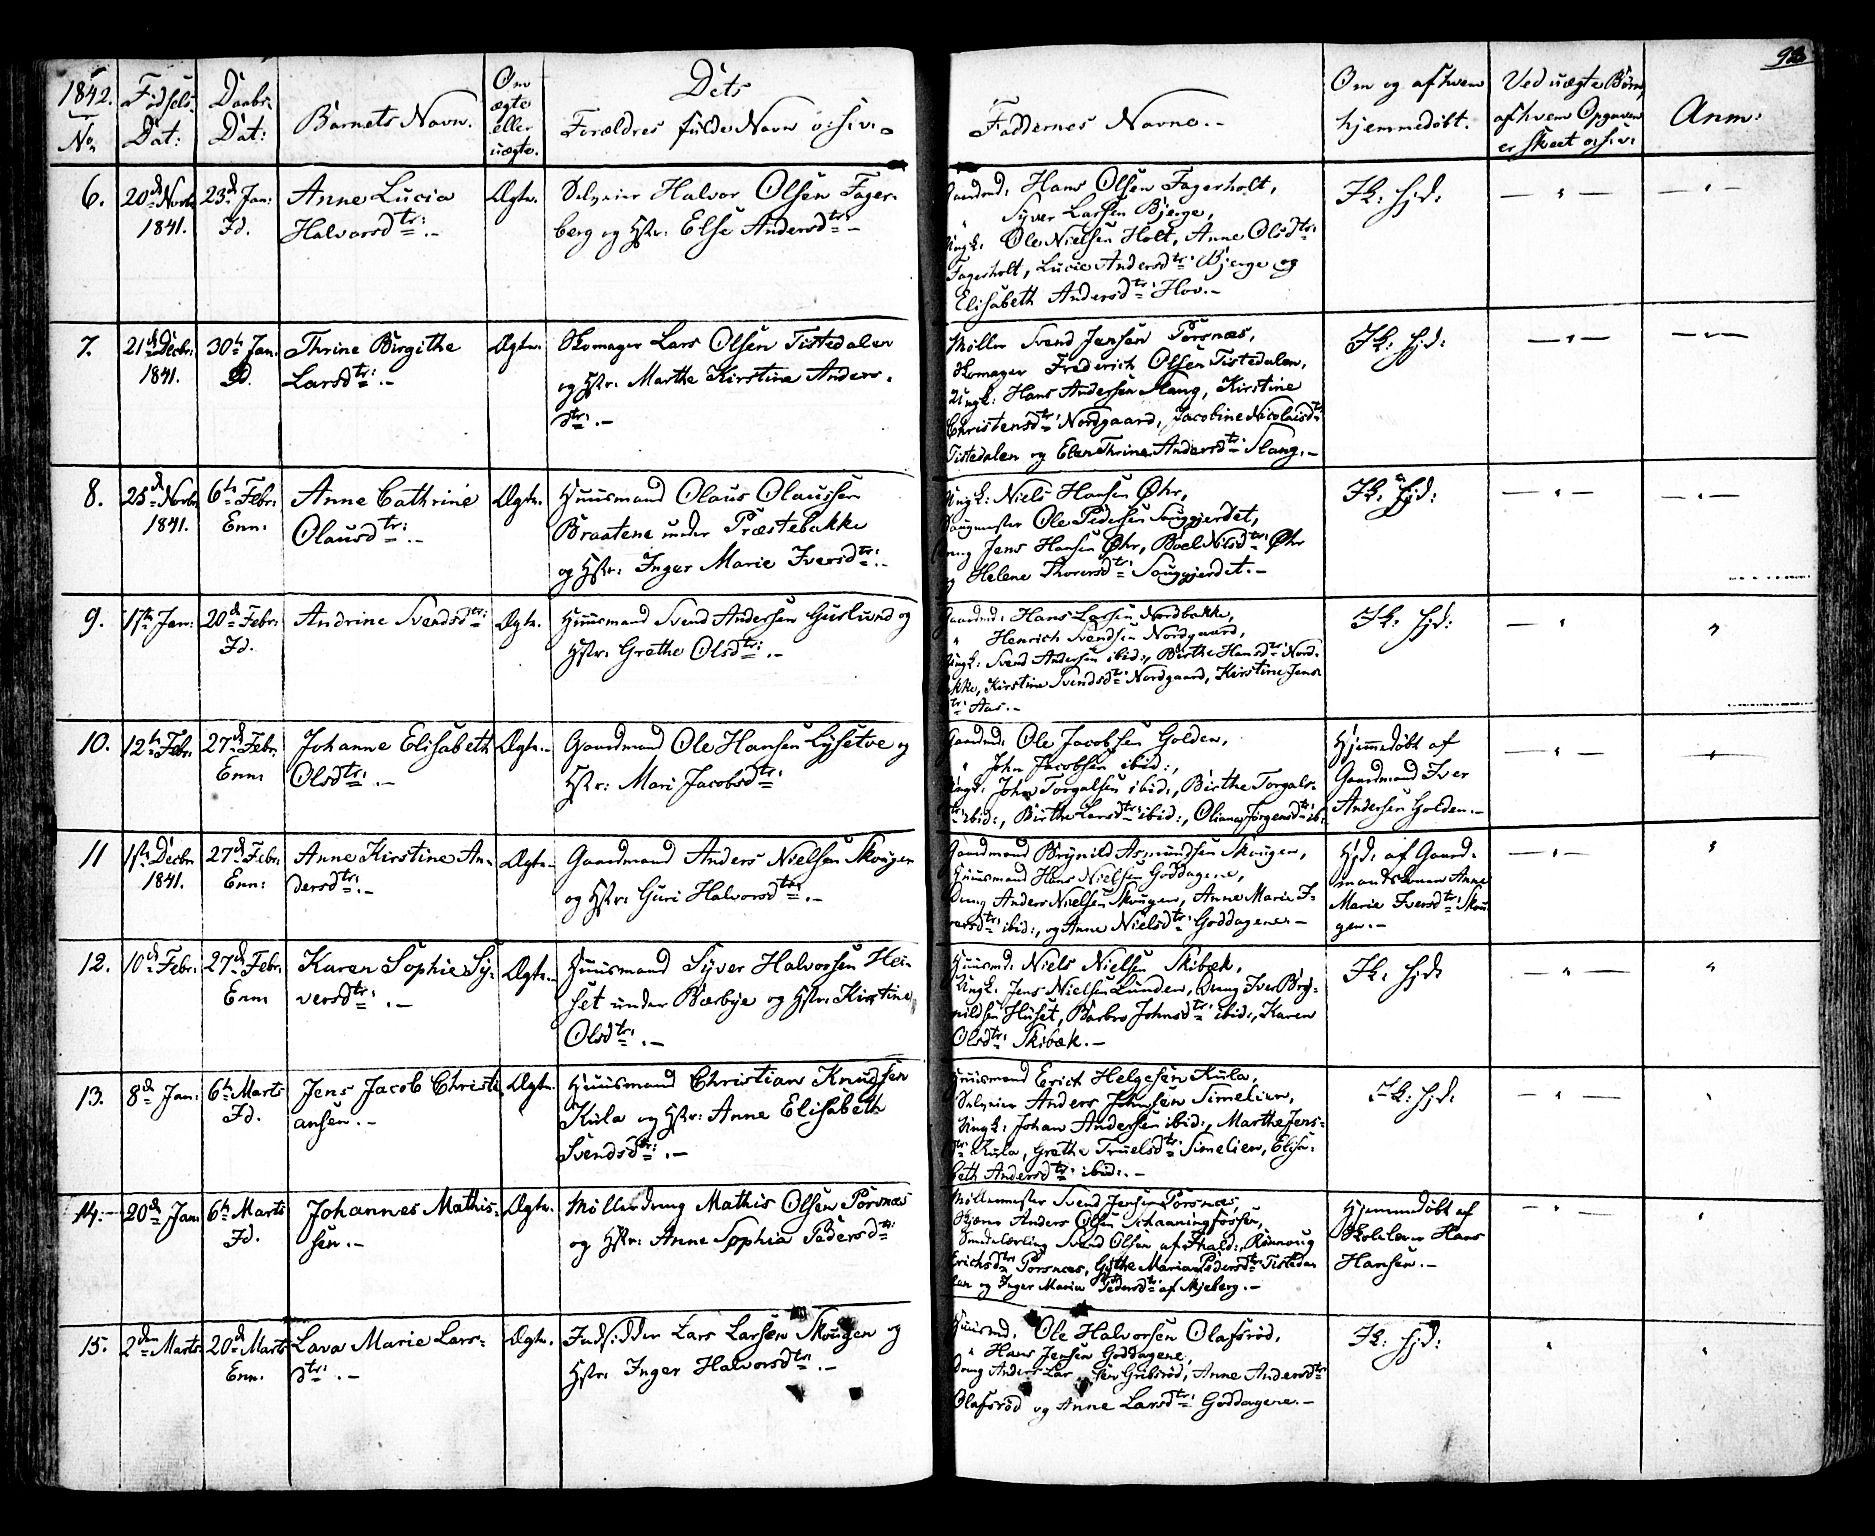 98
1842.
No
Fødsels
Dat:
Daabs
Dat:
Barnets Navn.
Om
ægte
eller
uægte.
Dets
Forældres fulde Navn o: s: v: -
Faddernes Navne. -
Om og af hvem
hjemmedøbt.
Ved uægte Børn,
af hvem Opgaven
er skeet o: s: v:
Anm:
6.
20de Novbr
1841.
23de Jan:
Id.
Anne Lucia
Halvorsdtr: -
Ægte.
Selveier Halvor Olsen Fager-
berg og Hstr: Else Andersdtr: -
Gaardmd: Hans Olsen Fagerholt,
Syver Larsen Bjerge,
Ungk: Ole Nielsen Holt, Anne Olsdtr:
Fagerholt, Lucie Andersdtr: Bjerge og
Elisabeth Andersdtr: Hov. -
Ik: hjd:
7.
21de Decbr:
1841.
30te Jan:
Id.
Thrine Birgithe
Larsdtr: -
Ægte.
Skomager Lars Olsen Tistedalen
og Hstr: Marthe Kirstine Anders-
dtr: -
Møller Svend Jensen Porsnæs,
Skomager Frederich Olsen Tistedalen,
Ungk: Hans Andersen Stang, Kirstine
Christensdtr: Nordgaard, Jacobine Nicolaisdtr:
Tistedalen og Elen Thrine Andersdtr: Stang. -
Ik: hjd:
8.
25de Novbr
1841.
6te Febr:
Enn:
Anne Cathrine
Olausdtr: -
Ægte.
Huusmand Olaus Olaussen
Braatene under Præstebakke
og Hstr: Inger Marie Iversdtr: -
Ungk: Niels Hansen Øhr,
Saugmester Ole Pedersen Sauggjerdet,
Dreng Jens Hansen Øhr, Boel Nilsdtr: Øhr
og Helene Thorersdtr: Sauggjerdet. -
Ik: hjd:
9.
1ste Jan:
20de Febr:
Id.
Andrine Svendsdtr:
Ægte.
Huusmand Svend Andersen Guslund og
Hstr: Grethe Olsdtr: -
Gaardmd: Hans Larsen Nordbakke,
" Henrich Svendsen Nordgaard,
Ungk: Svend Andersen ibid:, Birthe Hansdtr: Nord-
bakke, Kirstine Svendsdtr: Nordgaard, Kirstine Jens-
dtr: Aas. -
Ik: hjd:
10.
12te Febr.
27de Febr:
Enn:
Johanne Elisabeth
Olsdtr: -
Ægte.
Gaardmand Ole Hansen Lysetve og
Hstr: Mari Jacobsdtr:
Gaardmd: Ole Jacobsen Golden,
" John Jacobsen ibid:,
Ungk: John Torgalsen ibid:, Birthe Torgals-
dtr: ibid:, Birthe Larsdtr: ibid:, Oliana Jørgensdtr: ib:
Hjemmedøbt af
Gaardmand Iver
Andersen Golden. -
11
1ste Decbr
1841.
27de Febr:
Enn:
Anne Kirstine An-
dersdtr: -
Ægte.
Gaardmand Anders Nielsen Skougen
og Hstr: Guri Halvorsdtr: -
Gaardmand Brynild Asmundsen Skougen,
Huusmand Hans Nielsen Goddagene,
Dreng Anders Nielsen Skougen, Anne Marie I-
versdtr: ibid:, og Anne Nielsdtr: Goddagene. -
Hjd: af Gaard-
mandskonen Anne
Marie Iversdtr: Skou-
gen. -
12.
10de Febr:
27de Febr:
Enn:
Karen Sophie Sy-
versdtr: -
Ægte.
Huusmand Syver Halvorsen Hei-
set under Bærbye og Hstr: Kirstine
Olsdtr: -
Huusmd: Niels Nielsen Skibæk,
Ungk: Jens Nielsen Lunden, Dreng Iver Bry-
nildsen Huset, Barbro Johnsdtr: ibid:, Karen
Olsdtr: Skibæk. -
Ik: hjd:
13.
8de Jan:
6te Marts
Id.
Jens Jacob Christi-
ansen. -
Ægte.
Huusmand Christian Knudsen
Kula og Hstr: Anne Elisabeth
Svendsdtr: -
Huusmand Erich Helgesen Kula,
Selveier Anders Johnsen Simelien,
Ungk: Johan Andersen ibid:, Marthe Jens-
dtr: Kula, Grethe Truelsdtr: Simelien, Elisa-
beth Andersdtr: ibid: -
Ik: hjd:
14.
20de Jan
6te Marts
Id.
Johannes Mathis-
sen. -
Ægte.
Møllerdreng Mathis Olsen Porsnæs
og Hstr: Anne Sophia Pedersdtr:
Møllemester Svend Jensen Porsnæs,
Anders Olsen Schaaningfossen,
Smedelærling Svend Olsen af Frhald:, Rønnoug
Erichsdtr: Porsnæs, Gythe Maria Pedersdtr: Tisteda-
len og Inger Maria Pedersdtr: af Skjeberg. -
Hjemmedøbt af
Skolelærer Hans
Hansen. -
15.
2den Marts
20de Marts
Enn:
Lava Marie Lars-
dtr: -
Ægte.
Indsidder Lars Larsen Skougen og
Hstr: Inger Halvorsdtr: -
Huusmd: Ole Halvorsen Olafsrød,
" Hans Jensen Goddagene,
Dreng Anders Larsen Gribsrød, Anne Andersdtr:
Olafsrød og Anne Larsdtr: Goddagene. -
Ik: hjd: